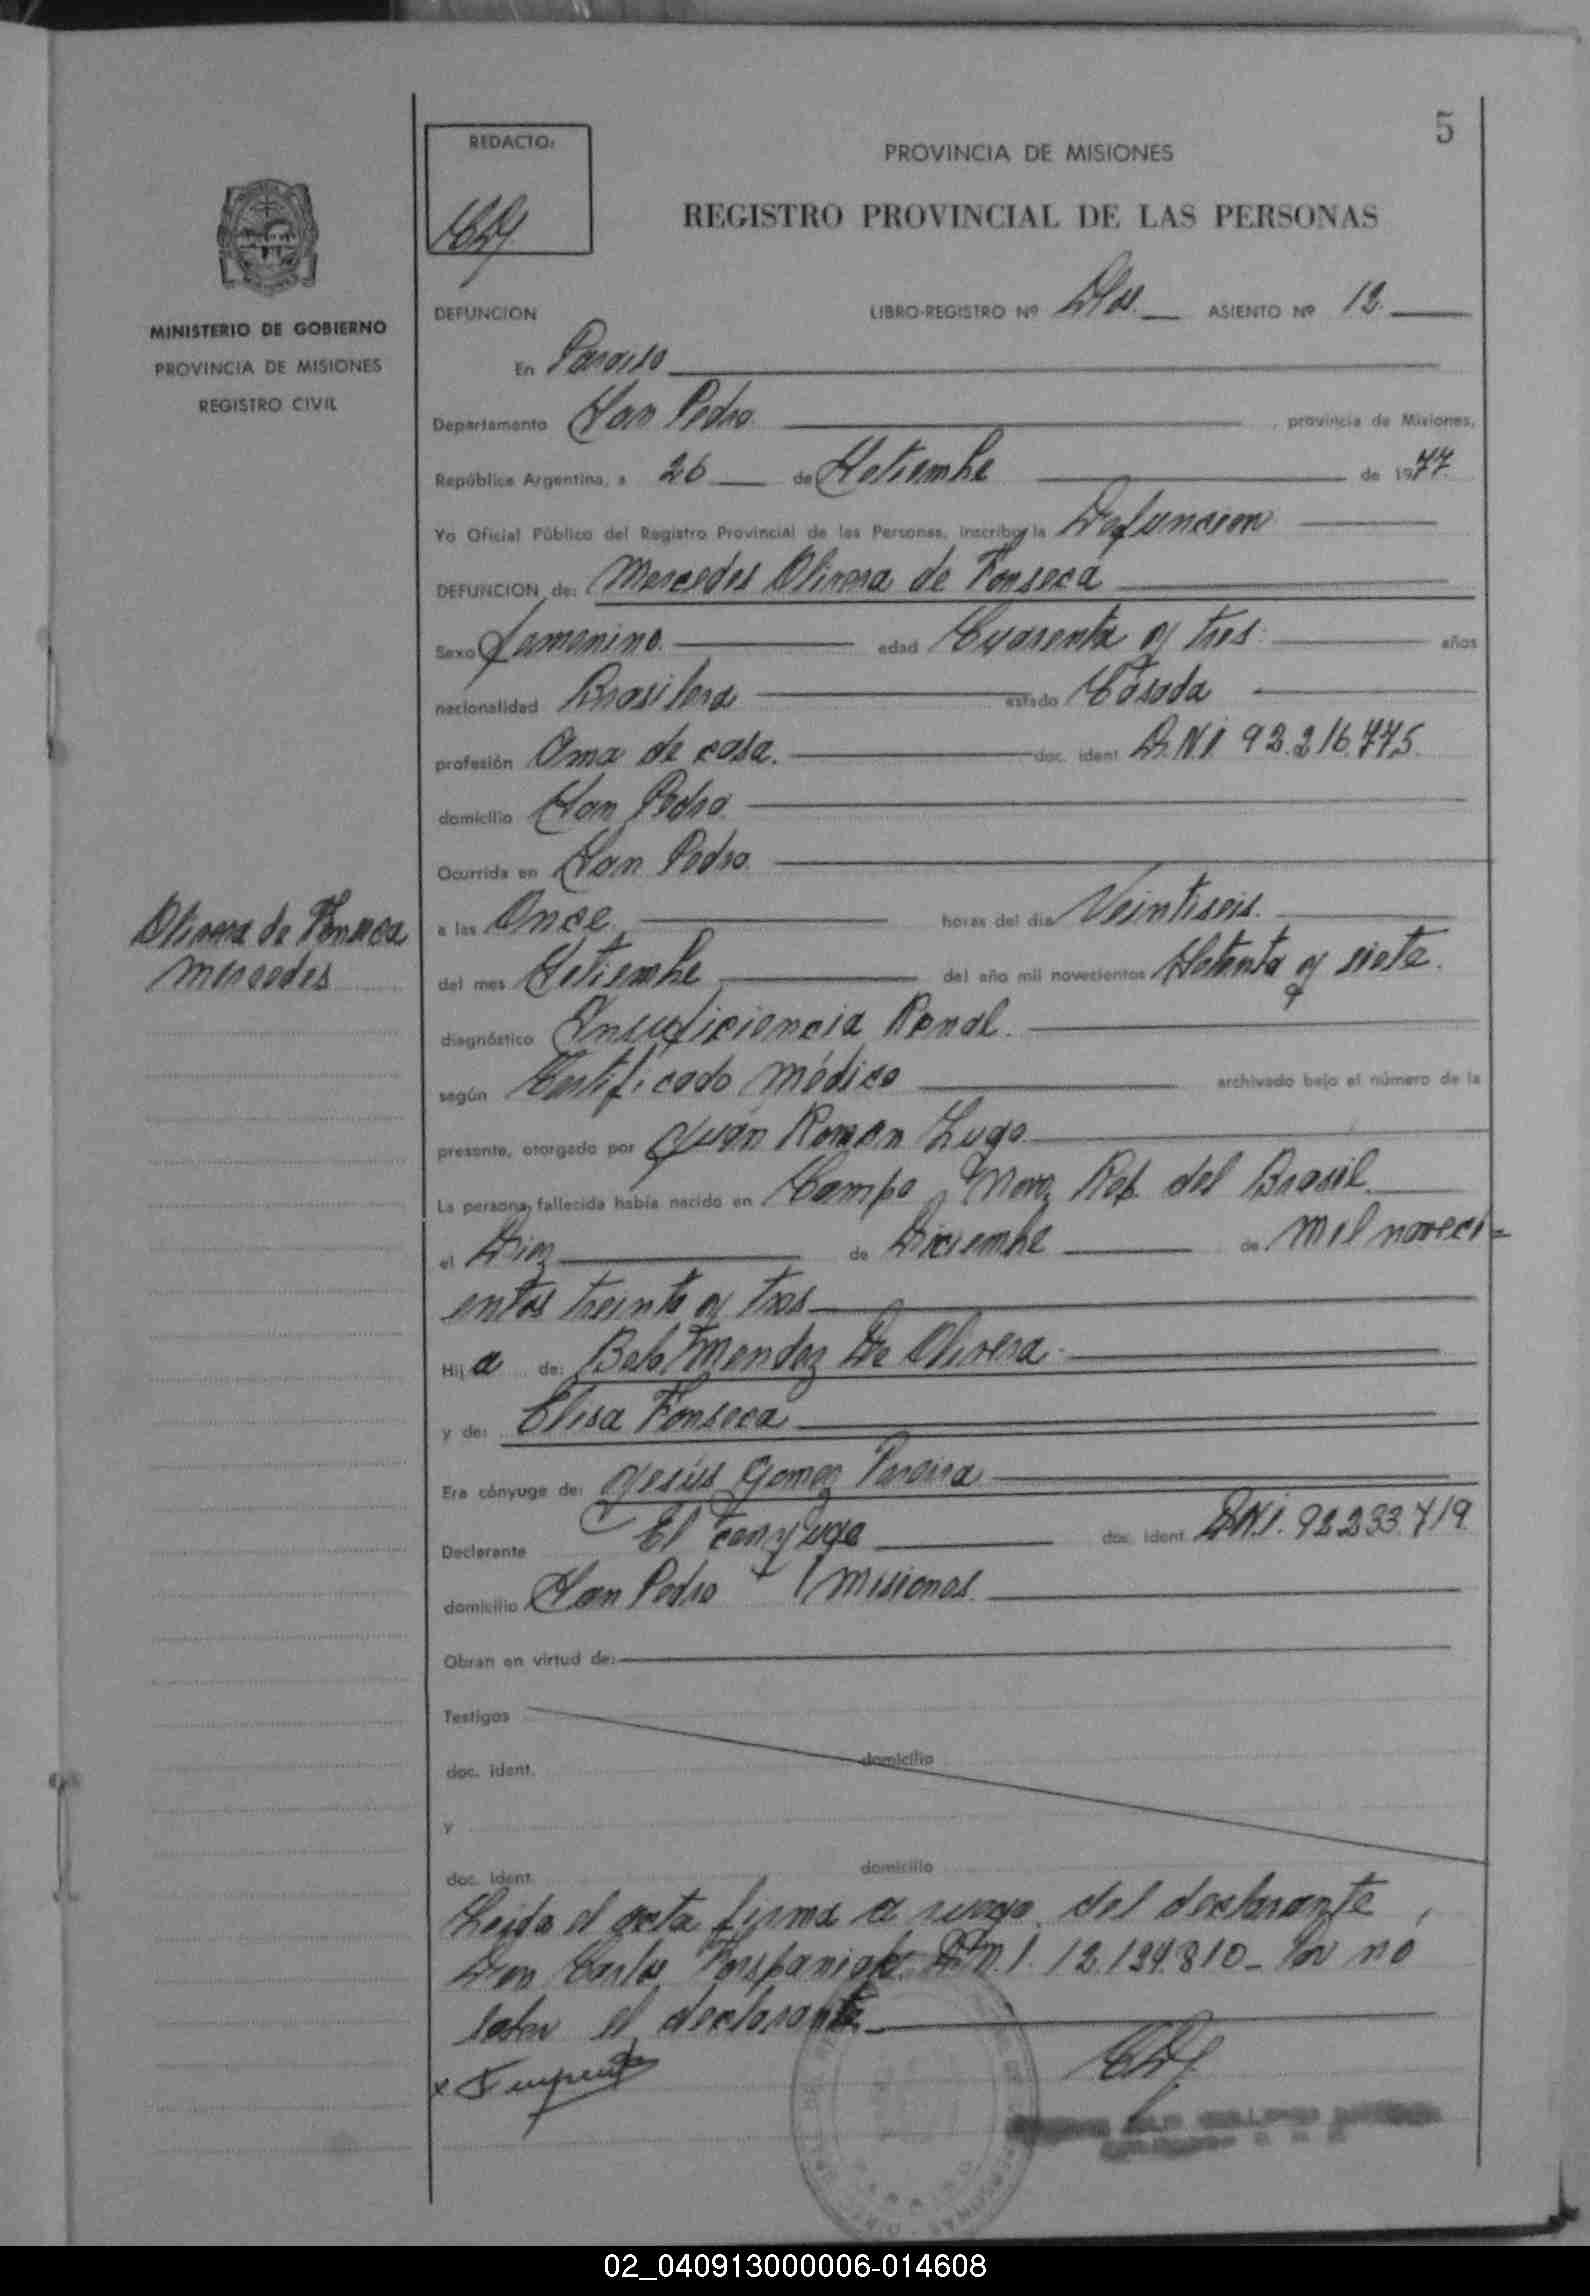 5
REDACTO:
PROVINCIA DE MISIONES
REGISTRO PROVINCIAL DE LAS PERSONAS
MINISTERIO DE GOBIERNO
PROVINCIA DE MISIONES
REGISTRO CIVIL
DEFUNCION LIBRO-REGISTRO Nº Dos. ASIENTO Nº 12.
En Paraiso
Departamento San Pedro , provincia de Misiones,
República Argentina, a 26 de Setiembre de 1977.
Yo Oficial Público del Registro Provincial de las Personas, inscribo la Defuncion
DEFUNCION de: Mercedes Olivera de Fonseca
Sexo femenino. edad Cuarenta y tres. años
nacionalidad Brasilera estado Casada
profesión Ama de casa. doc. ident. D.N.I. 92.216.775.
domicilio San Pedro.
Ocurrida en San Pedro.
Olivera de Fonseca
Mercedes
a las Once. horas del dia Veintiseis.
del mes Setiembre del año mil novecientos Setenta y siete.
diagnóstico Insuficiencia Renal.
según Certificado Médico archivado bajo el número de la
presente, otorgado por Juan Roman Lugo
La persona fallecida había nacido en Campo Novo, Rep. del Brasil.
el Diez de Diciembre de Mil noveci=
entos treinta y tres
Hija de: Belo Mendez De Olivera.
y de: Elisa Fonseca
Era cónyuge de: Jesús Gomez Pereira
Declarante El conyuge doc. ident. D.N.I. 92.233.719.
domicilio San Pedro Misiones.
Obran en virtud de:
Testigos
doc. ident. domicilio
y
doc. ident. domicilio
Leida el acta firma a ruego del declarante,
Don Carlos D.N.I. 12.194.810_ Por no
saber el declarante
02_040913000006-014608